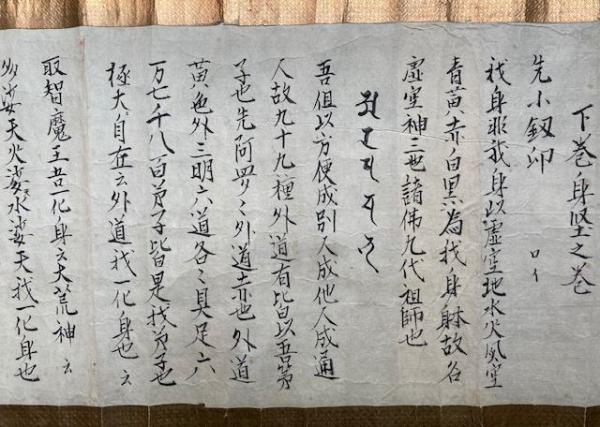 下巻身堅之巻
先小釼印 口イ
我身非我身以虚空地水火風空
青黄赤白黒為我身躰故名
虚空神三世諸佛九代祖師也
吾但以方便成別人成他人成通
人故九十九種外道有皆以吾第
子也先阿羅々外道赤也外道
黄色外三明六道各々具足六
万七千八百弟子皆是我弟子也
極大自在云外道我一化身也云
取智魔王吾一化身云大荒神云
多婆天火婆水婆天我一化身也